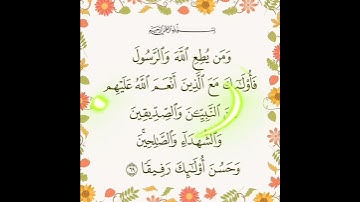 بِسْمِ اللَّهِ الرَّحْمَٰنِ الرَّحِيمِ
وَمَن يُطِعِ اللَّهَ وَالرَّسُولَ
فَأُو۟لَـٰٓئِكَ مَعَ الَّذِينَ أَنْعَمَ اللَّهُ عَلَيْهِم
النَّبِيِّـۧنَ وَالصِّدِّيقِينَ
وَالشُّهَدَآءِ وَالصَّـٰلِحِينَ ۚ
وَحَسُنَ أُو۟لَـٰٓئِكَ رَفِيقًا ٦٩